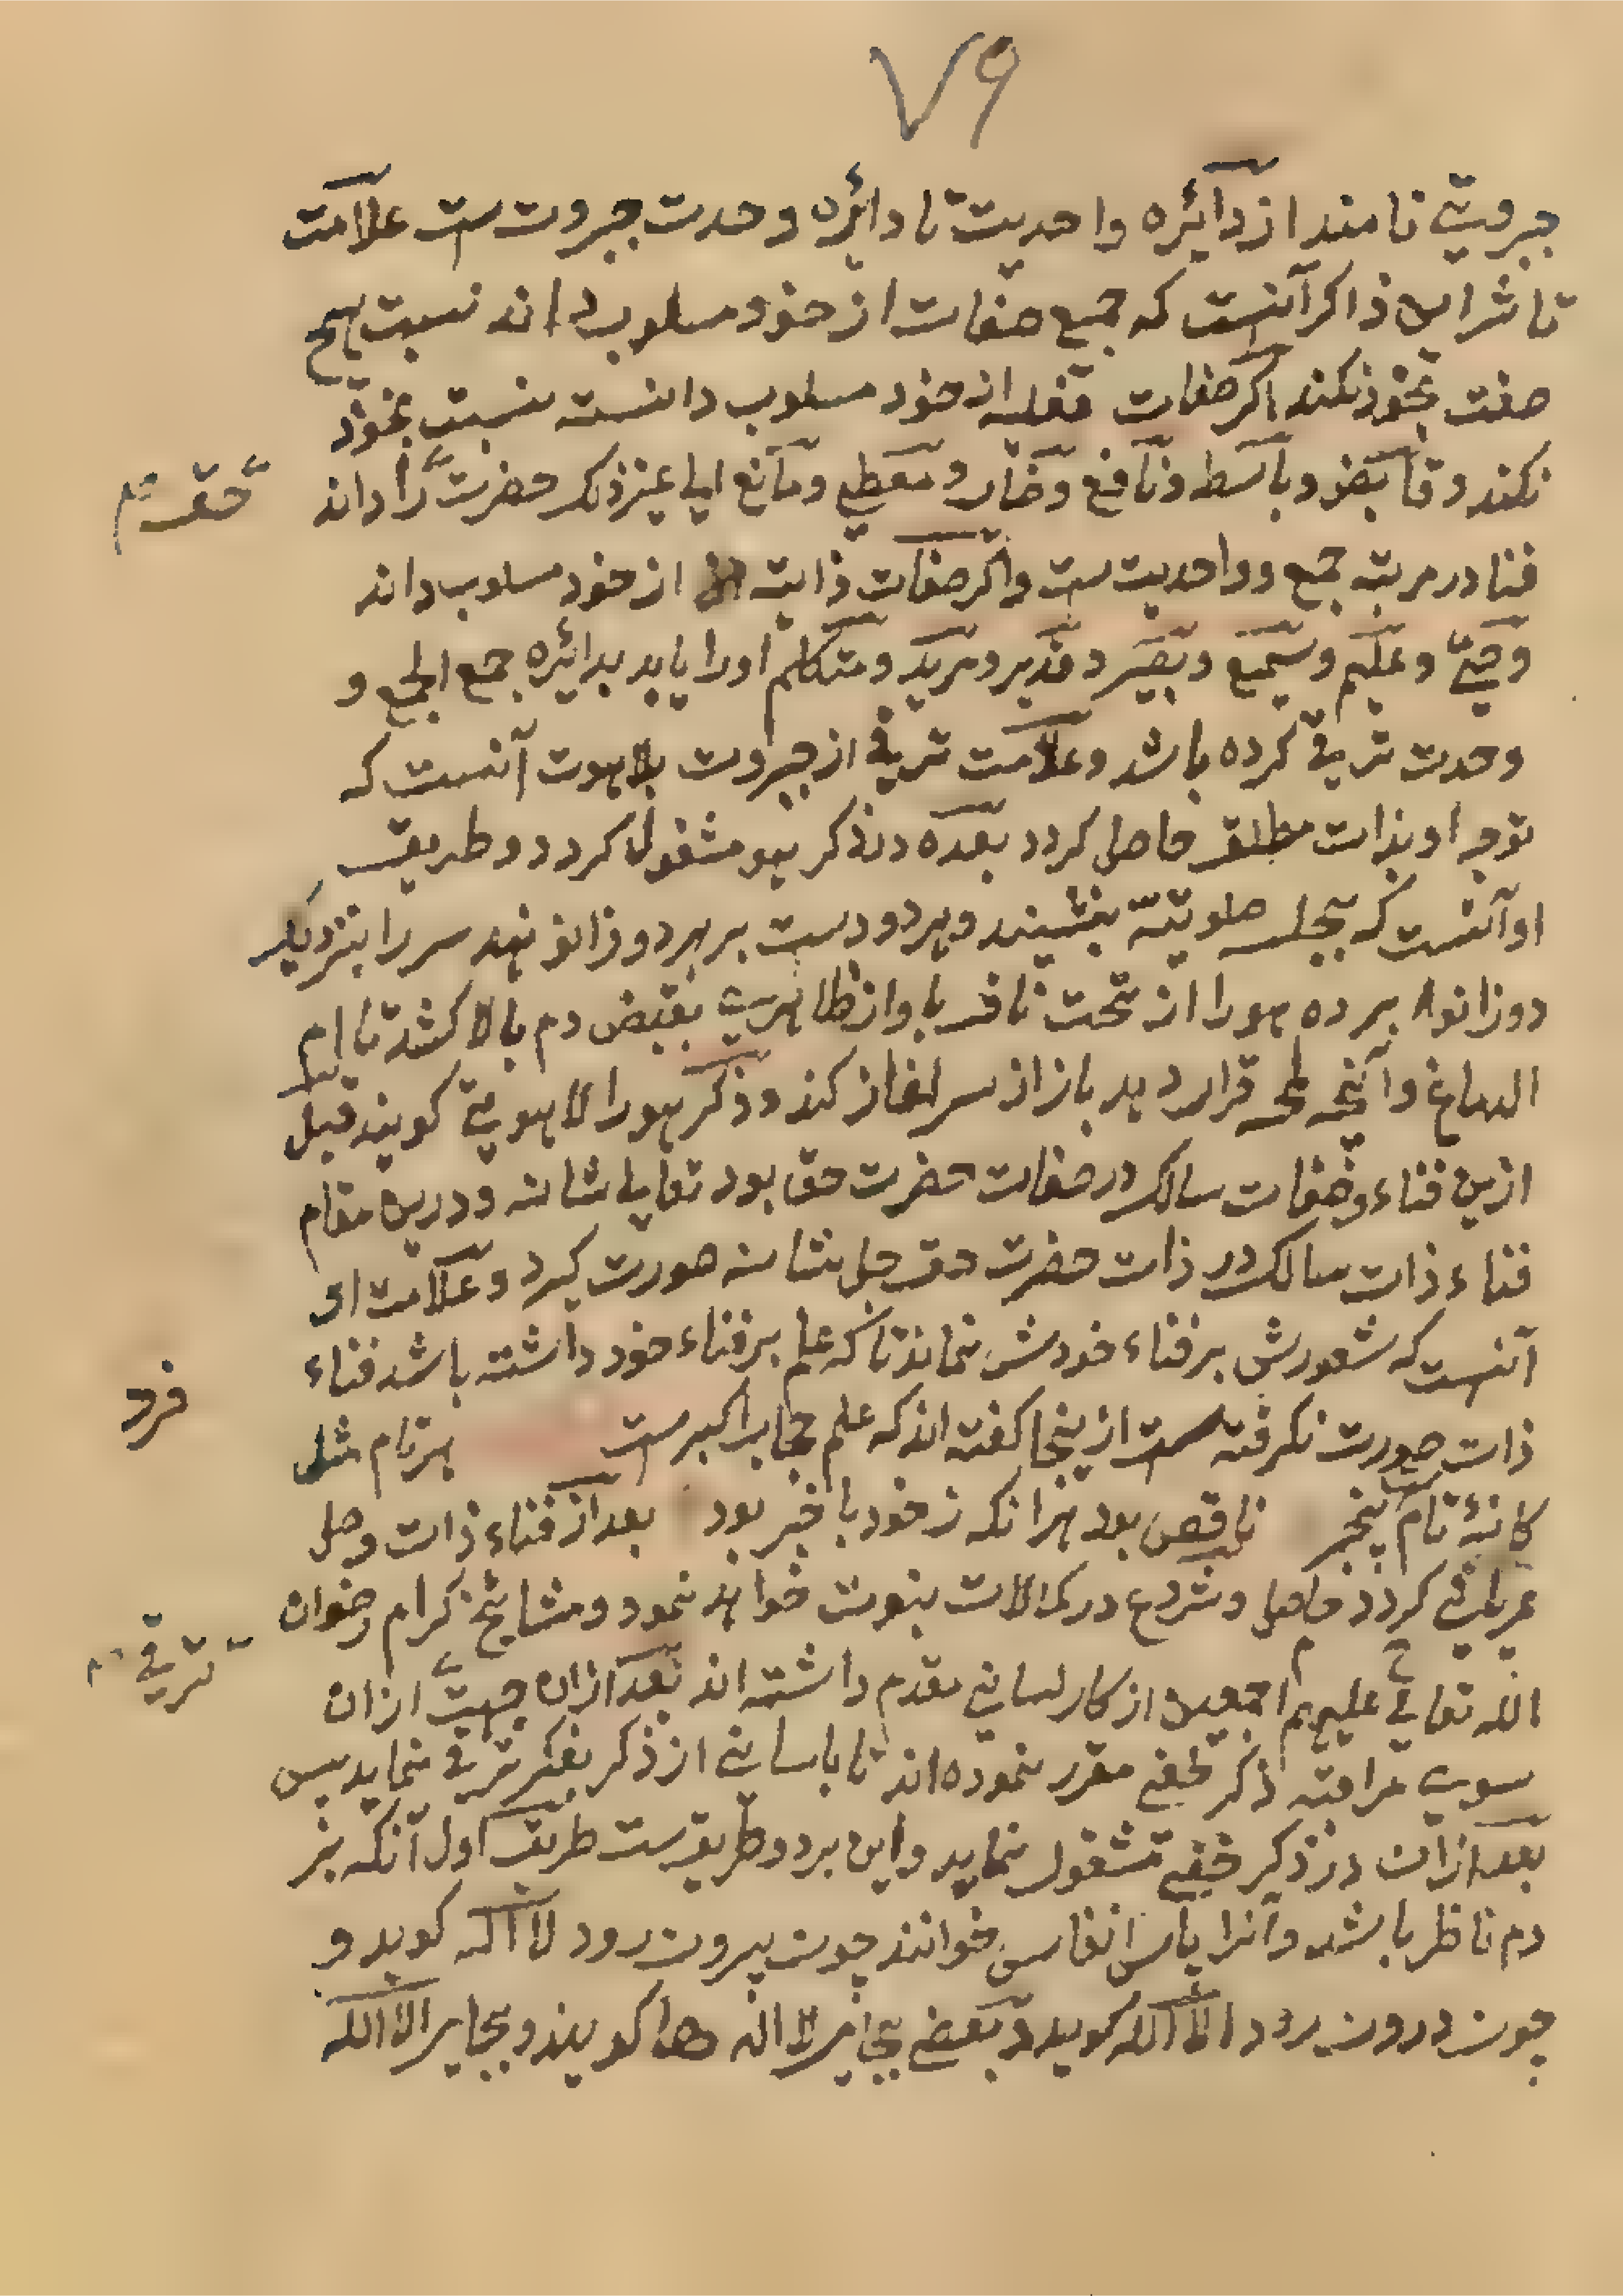 ۷۹
جبروتی نامند از دآئره واحدیت تا دائره وحدت جبروت ست علآمت
تاثر این ذاکر آنست که جمیع صفات از خود مسلوب داند نسبت هیچ
صفت بخود نکند اکر صفات فعلیه از خود مسلوب دانسته نسبت بخود
نکند و قابض و باسط و نافع و ضار و معطی و مانع ایا عیر ذلک حضرت را داند
حق
فنا در مرتبه جمع و واحدیت ست واکر صفات ذاتیه از خود مسلوب داند
و حیّ و علیم و سمیع و بصیر و قدیر و مرید و متکلم اورا یابد بدائره جمع الجمع و
وحدت ترقی کرده باشد و علآمت ترقی از جبروت بلاهوت آنست که
توجه او بذات مطلق حاصل کردد بعده در ذکر هو مشغول کردد و طریق
او آنست که بجلسه صلوتیّه بنشیند و هر دو دست بر هر دو زانو نهد سر را بنزدیک
دو زانو برده هورا از تحت ناف باواز ظاهری بقبض دم بالا کشد تا ام
الدماغ و آنجا لمحه قرار دهد باز از سر اغاز کند و ذکر هورا لاهوتی کویند قبل
ازین فناء صفات سالک در صفات حضرت حق بود تعالی شانه و درین مقام
فناء ذات سالک در ذات حضرت حق جل شانه صورت کیرد و علآمت او
آنست که شعورش بر فناء خودش نماند تا که علم بر فناء خود داشته باشد فناء
ذات صورت نکرفته ست از ینجا کفته اند که علم حجاب اکبر ست هر تام مثل
فرد
کانهٔ تام بیخبر ناقص بود هر انکه ز خود با خبر بود بعد از فناء ذات وصل
عریانی کردد حاصل و شروع در کمالات نبوت خواهد نمود و مشایخ کرام رضوان
الله تعالی علیهم اجمعین اذکار لسانی مقدم داشته اند بعد ازان جهیت ازان
ترقی
سوی مراقبه ذکر خفی مقرر نموده اند تا باسانی از ذکر بفکر ترقی نماید پس
بعد ازان در ذکر خفی مشغول نماید و این بر دو طریق ست طریق اول آنکه بر
دم ناظر باشد و آنرا پاس انفاس خوانند چون بیرون رود لا آله کوید و
چون درون رود الا آلله کوید و بعضی بجای لا اله ها کویند و بجای الا الله